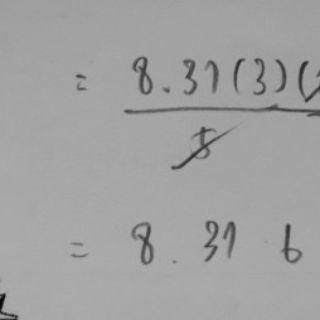 = 8.31(3)(
5
= 8.31 6